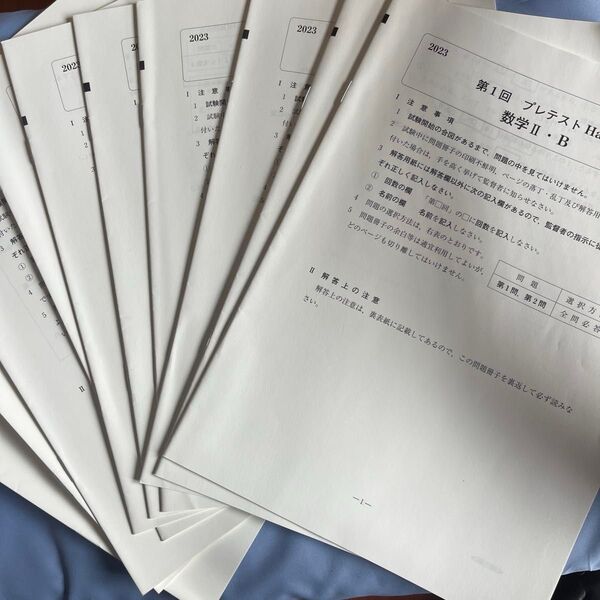 2023
第1回 プレテスト Ha
数学Ⅱ・B
Ⅰ 注意事項
1 試験開始の合図があるまで、問題の中を見てはいけません。
2 試験中に問題冊子の印刷不鮮明、ページの落丁・乱丁及び解答用
付いた場合は、手を高く挙げて監督者に知らせなさい。
3 解答用紙には解答欄以外に次の記入欄があるので、監督者の指示に従
ぞれ正しく記入しなさい。
① 回数の欄 「第□回」の□に回数を記入しなさい。
② 名前の欄 名前を記入しなさい。
4 問題の選択方法は、右表のとおりです。
5 問題冊子の余白等は適宜利用してよいが、
どのページも切り離してはいけません。
問題 選択方
第1問, 第2問 全問必答
Ⅱ 解答上の注意
解答上の注意は、裏表紙に記載してあるので、この問題冊子を裏返して必ず読みな
さい。
―1―
2023
Ⅰ 注
1
2
付い
3
ぞれ
①
2023
Ⅰ 注意
1 試験
2
付い
3 解
ぞれ
2023
Ⅰ 注意事
1 試験開
2 試験中
付いた場
3 解答用
ぞれ正
2023
Ⅰ
1
2
付
3
ぞ
①
②
4
5
ど
Ⅱ
2023